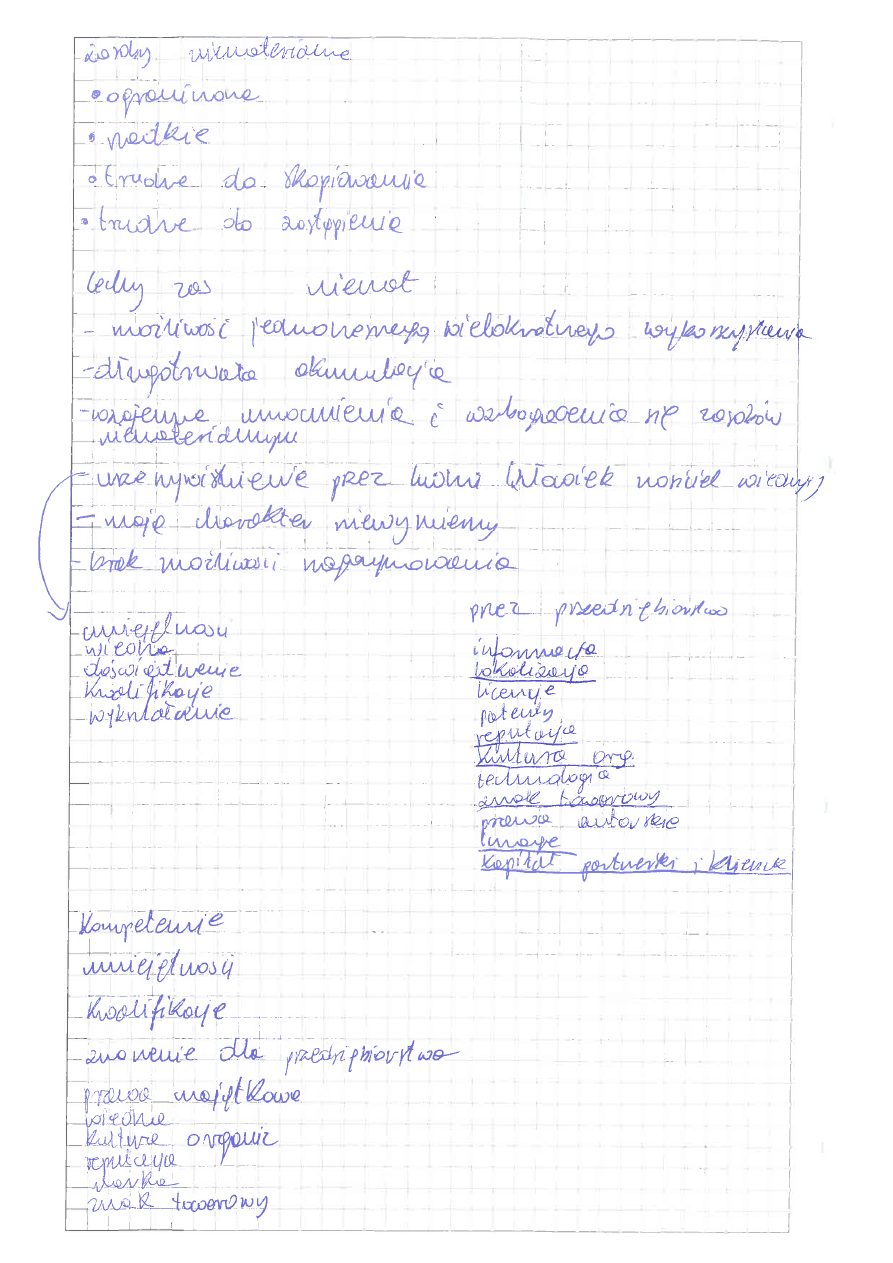 zasoby niematerialne
• ograniczone
• rzadkie
• trudne do skopiowania
• trudne do zastąpienia
Cechy zas niemat
- możliwość jednoczesnego, wielokrotnego wykorzystania
- długotrwała akumulacja
- wzajemne umocnienia i wzbogacenia się zasobów
niematerialnych
- urzeczywistnienie przez ludzi (człowiek nosiciel wiedzy)
- mają charakter niewymierny
- brak możliwości
przez przedsiębiorstwo
umiejętności
wiedza
doświadczenie
kwalifikacje
wykształcenie
informacja
lokalizacja
licencje
patenty
reputacja
kultura org.
technologia
znak towarowy
prawa autorskie
image
kapitał partnerski i klienck
Kompetencje
umiejętności
Kwalifikacje
znaczenie dla przedsiębiorstwa
prawa majątkowe
wiedza
kultura organiz
reputacja
marka
znak towarowy